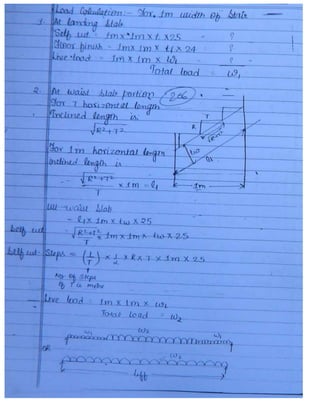 Load Calculation:- For 1m width of Slab -
1. At landing Slab
Self wt = 1m x 1m x t x 25 = ?
Floor finish = 1m x 1m x t1 x 24 = ?
Live load = 1m x 1m x w1 = ?
Total load = w1
2. At waist slab portion 206
For T horizontal length
Inclined length is
√R²+T²
For 1m horizontal length
Inclined length is
= √R²+T²/T x 1m = l1
wt waist slab
= l1 x 1m x tw x 25
Self wt = √R²+T²/T x 1m x 1m x tw x 25
Self wt Steps = (1/T) x 1/2 x R x T x 1m x 25
No. of Steps
of 1 m metre
Live load = 1m x 1m x w2
Total load = w2
R T
tw
l1
1m
w1 w2 w1
OR
w2
leff